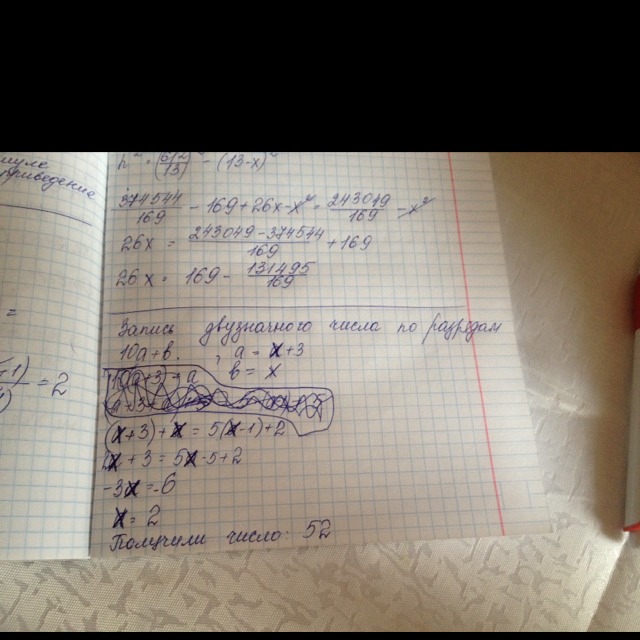 приведение
= 2
h² = (612/13)² - (13-x)²
374544/169 - 169 + 26x - x² = 243049/169 - x²
26x = 243049 - 374544/169 + 169
26x = 169 - 131495/169
Запись двузначного числа по разрядам
10a+b. , a = x+3
b = x
(x+3)+x = 5(x-1)+2
2x + 3 = 5x-5+2
-3x = -6
x = 2
Получили число: 52